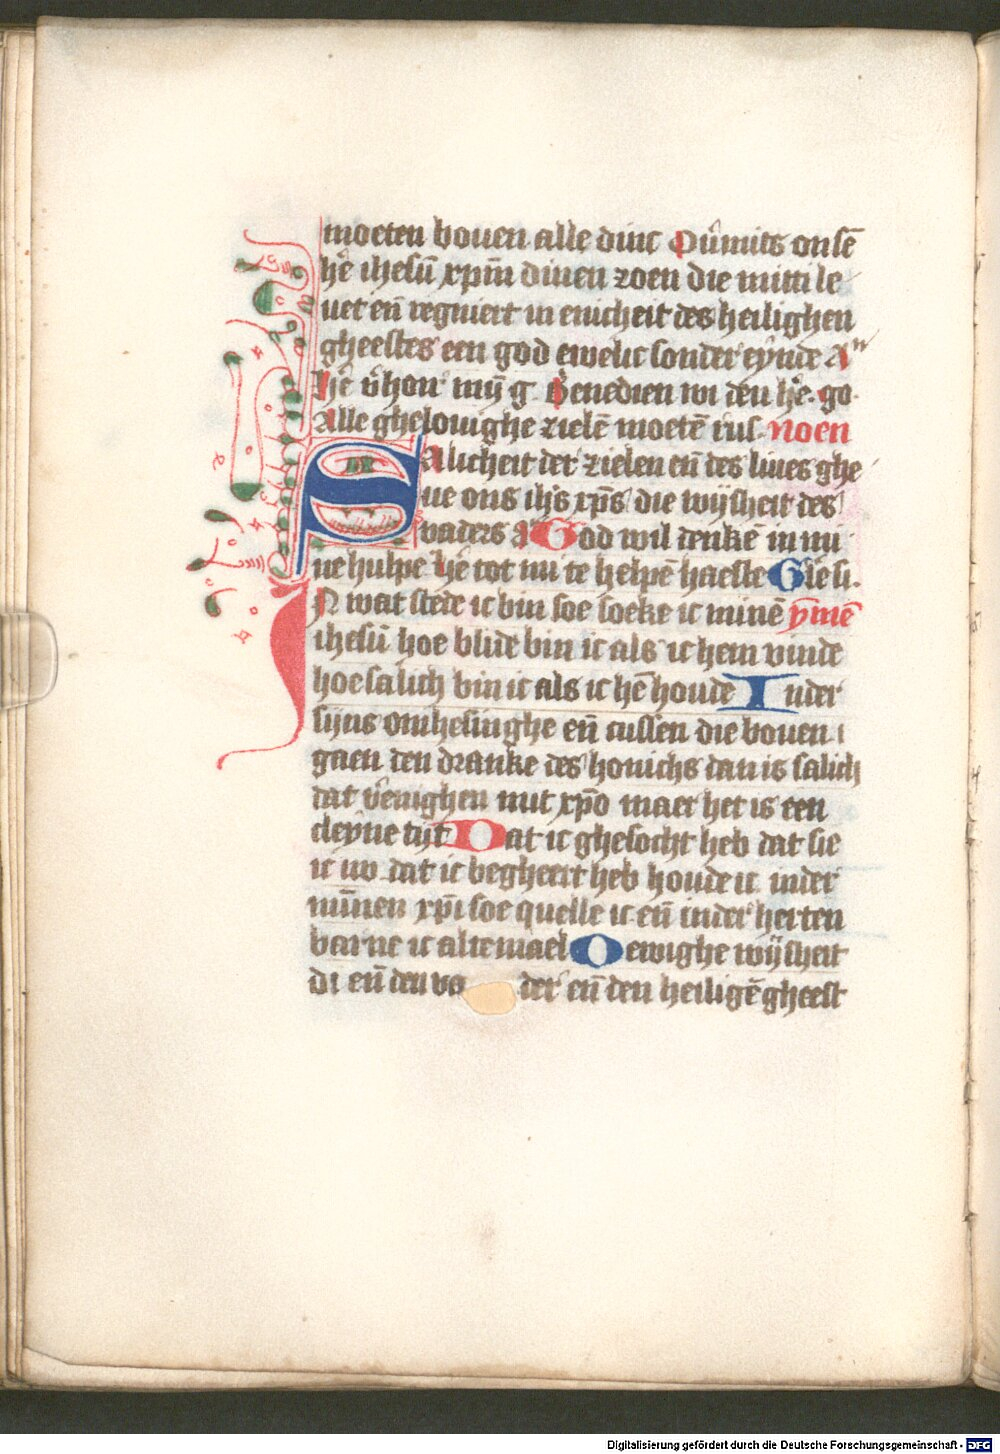 moeten bouen alle dinc Oūmits onsē
hē ihesū xpm̄ dinen zoen die mitti le
uet eñ regniert in enicheit des heilighen
gheestes een god ewelic sonder eynde An
hē v̄hoır mȳ g Benedien wi den hē go
Alle ghelouighe zielē moetē rus Noen
SAlicheit der zielen eñ des liues ghe
ue ons ihs xps die wijsheit des
vaders A God wil denkē in mi
ne hulpe hē tot mi te helpē haeste Glē si
IN wat stede ic bin soe soeke ic minē ymē
ihesū hoe blide bin ic als ic hem vinde
hoe salich bin ic als ic hē houde In der
sijns omhelsinghe eñ cussen die bouen
gaen den dranke des honichs dan is salich
dat v̄enighen mit xpo maer het is een
cleyne tijt Dat ic ghesocht heb dat sie
ic nv dat ic begheert heb houde ic in der
minnen xpi soe quelle ic eñ in der herten
barne ic altemael O ewighe wijsheit
di eñ den va der eñ den heiligē gheest
Digitalisierung gefördert durch die Deutsche Forschungsgemeinschaft - DFG